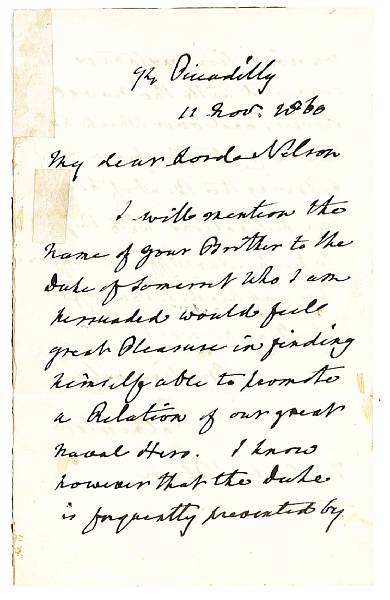 94 Piccadilly
11 Nov. 1860
My dear Lord Nelson
I will mention the
name of your Brother to the
Duke of Somerset who I am
persuaded would feel
great Pleasure in finding
himself able to promote
a Relation of our great
naval Hero. I know
however that the Duke
is frequently prevented by